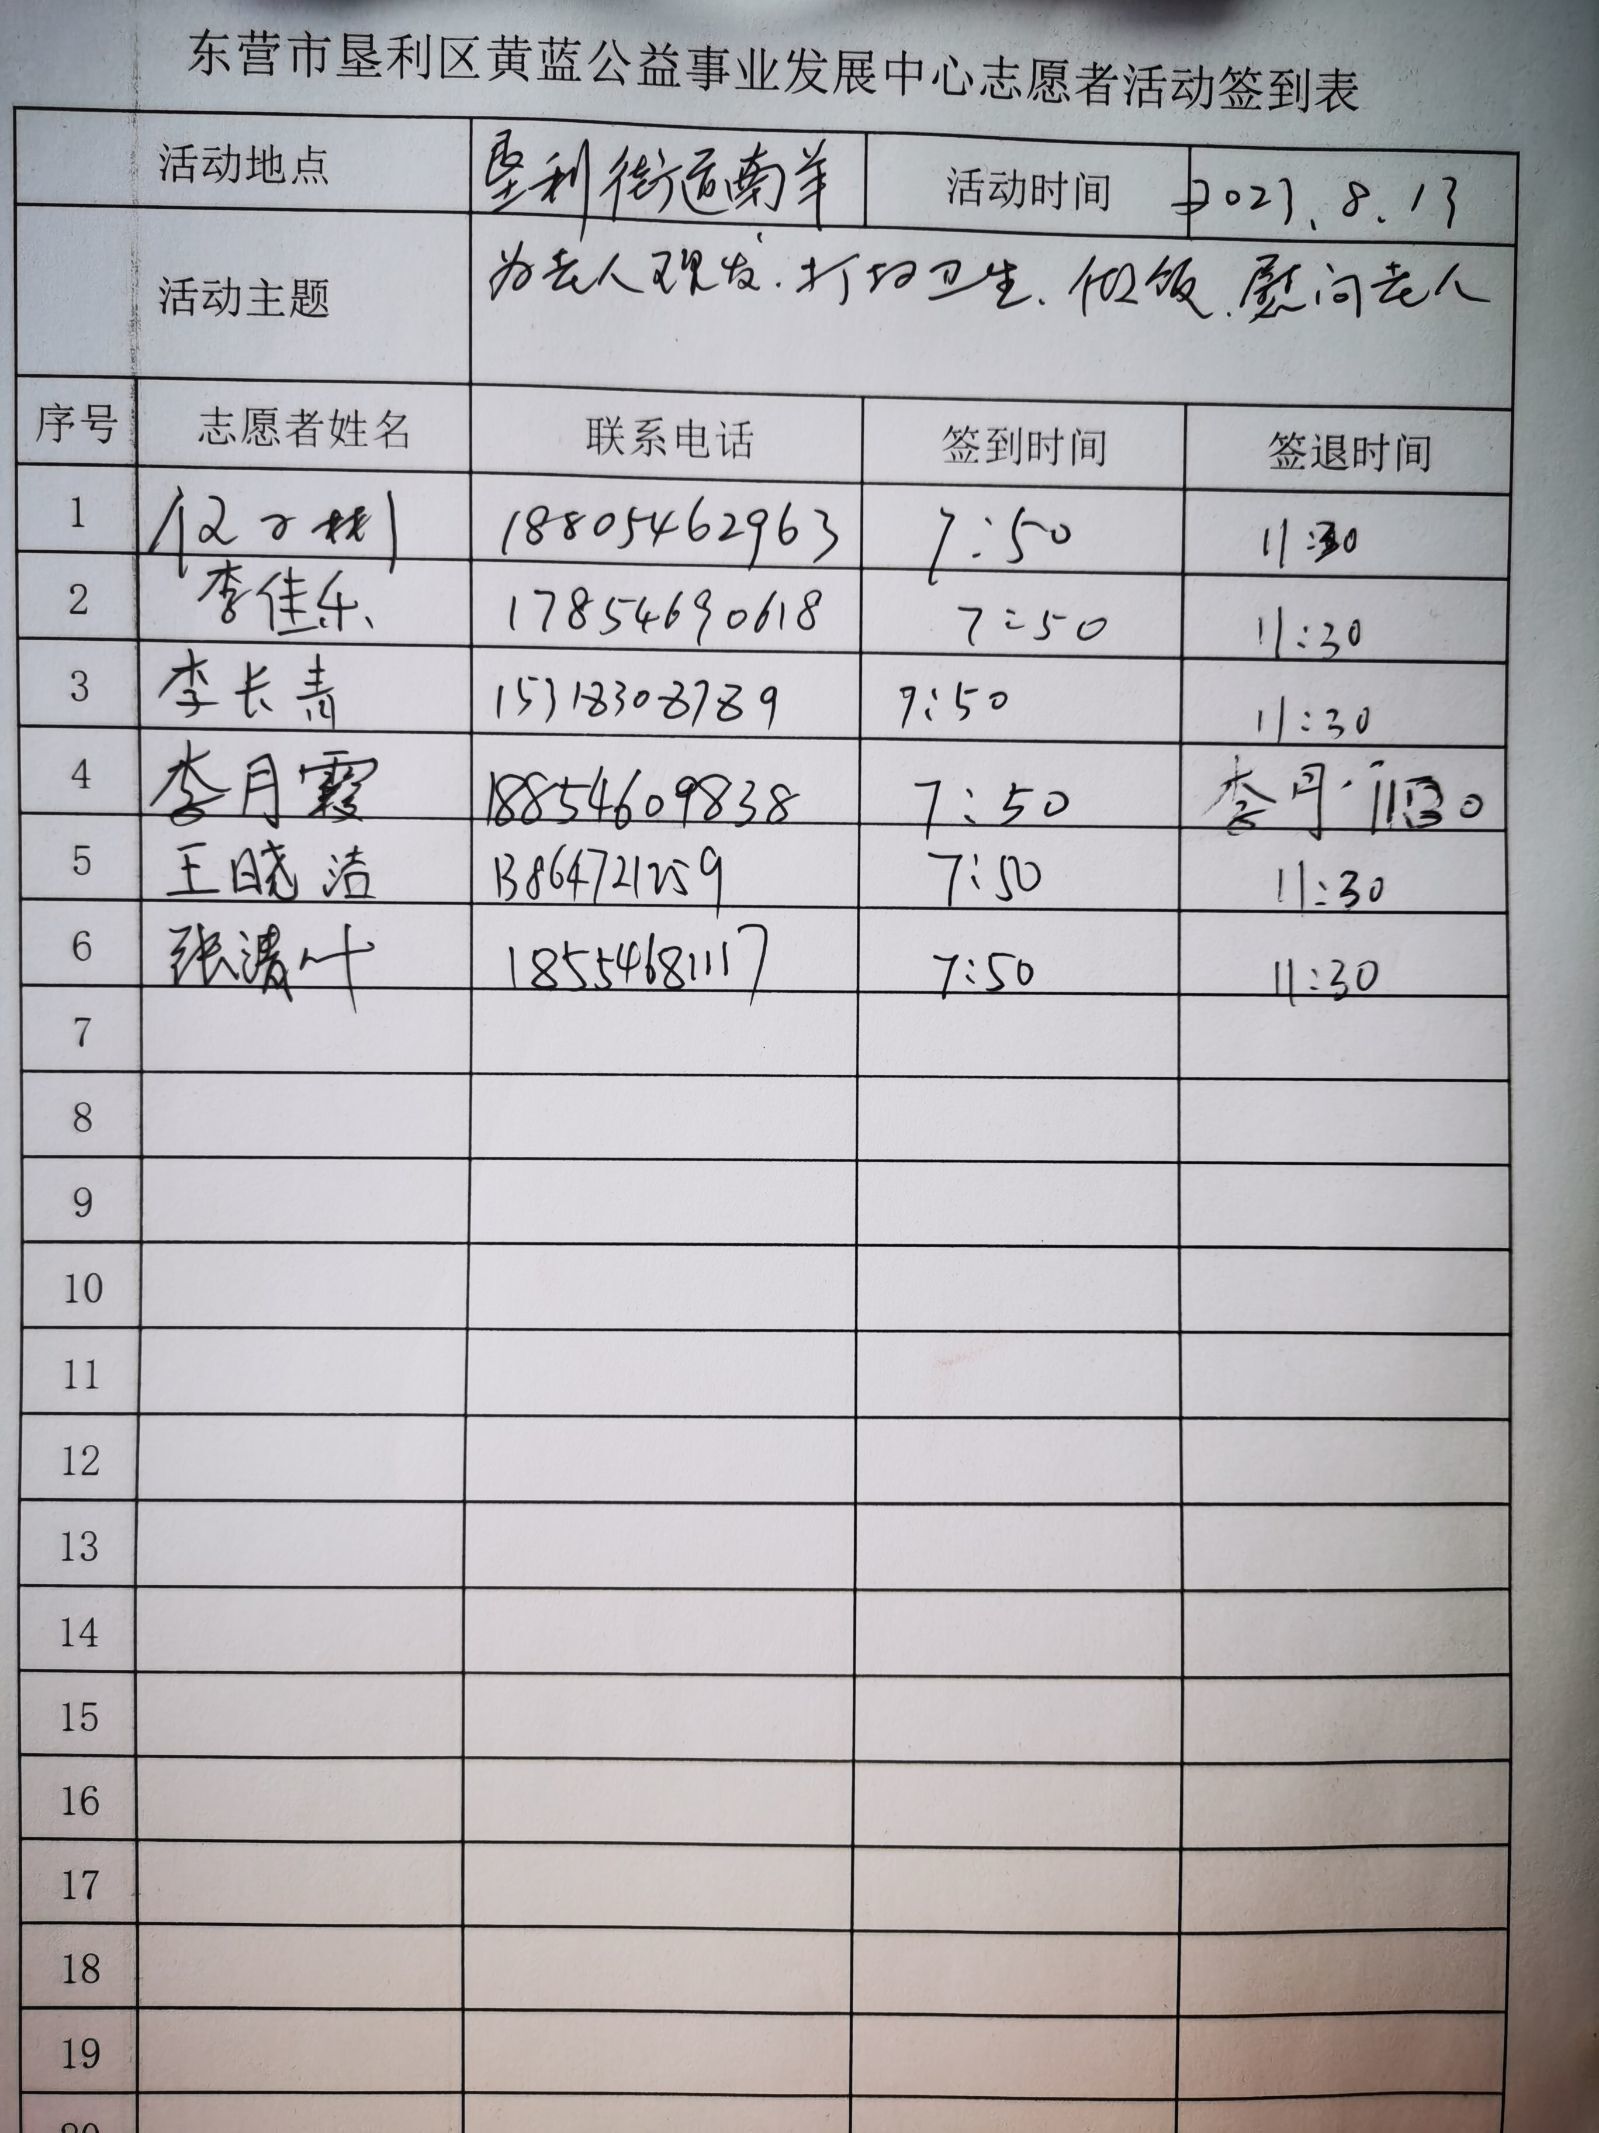 东营市垦利区黄蓝公益事业发展中心志愿者活动签到表
活动地点 垦利街道南羊 活动时间 2023.8.13
活动主题 为老人理发、打扫卫生、做饭、慰问老人
序号 志愿者姓名 联系电话 签到时间 签退时间
1 18805462963 7:50 11:30
2 李佳乐 17854690618 7:50 11:30
3 李长青 15318308789 7:50 11:30
4 李月霞 18854609838 7:50 李月 11:30
5 王晓洁 13864721259 7:50 11:30
6 张清叶 18554681117 7:50 11:30
7
8
9
10
11
12
13
14
15
16
17
18
19
20